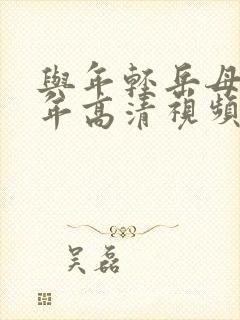 與年輕岳母
年高清視頻
吴磊